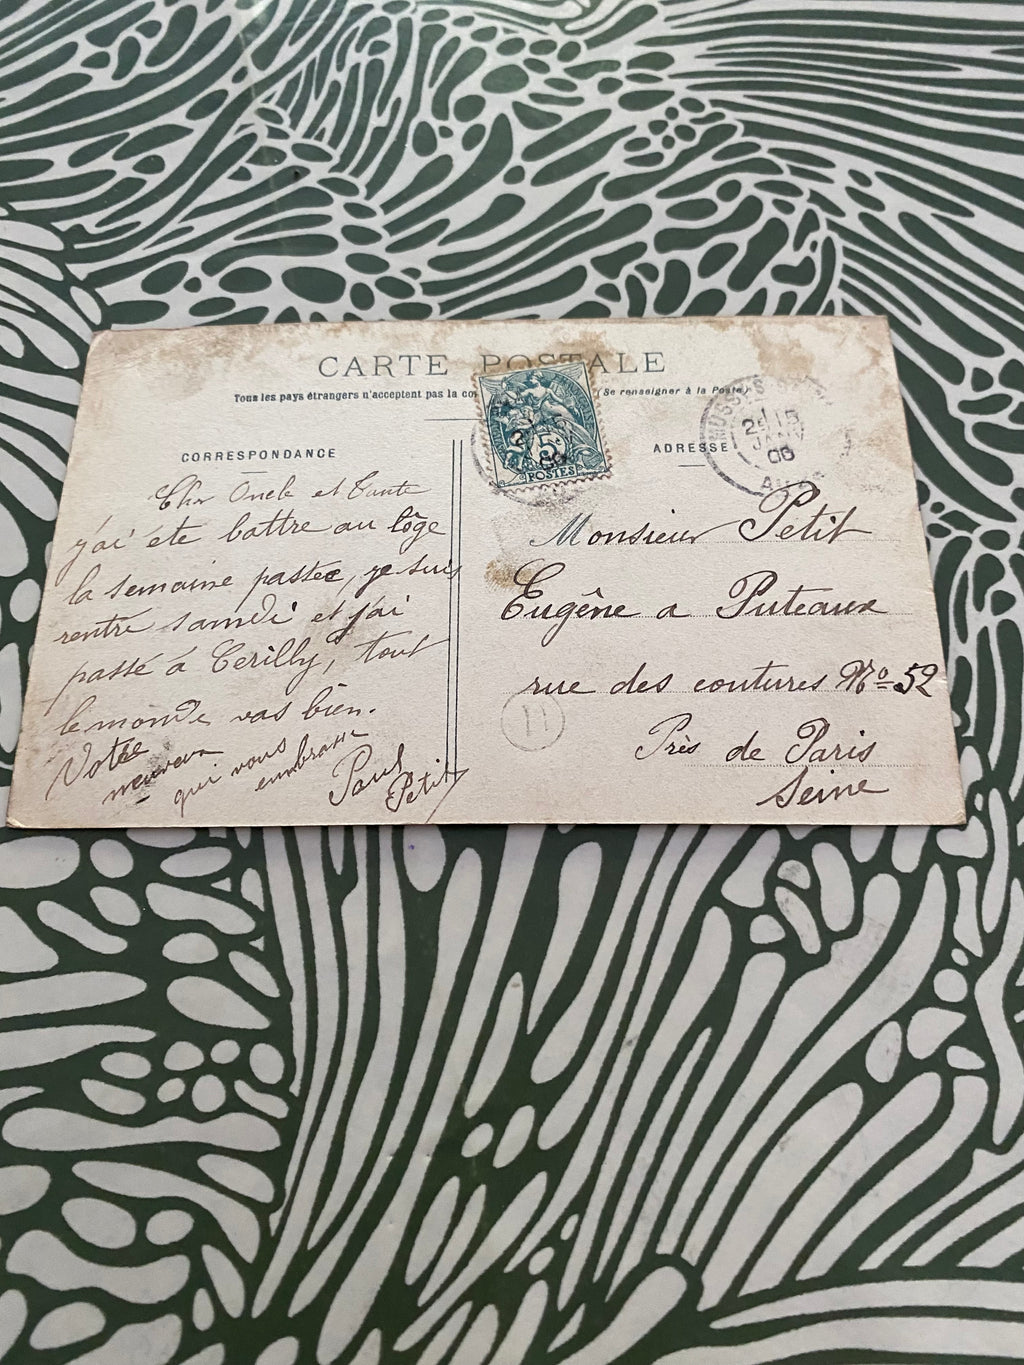 CARTE POSTALE
Tous les pays étrangers n'acceptent pas la co (Se renseigner à la Poste)
CORRESPONDANCE
Cher Oncle et Tante
j'ai été battre au lôge
la semaine passée, je suis
rentré samedi et j'ai
passé à Cerilly, tout
le monde vas bien.
Votre
neuveux
qui vous
embrasse
Paul
Petit
5c
POSTES
ADRESSE
MUSSY-S
25 15
JANV
06
AUBE
Monsieur Petit
Eugêne a Puteaux
rue des coutures No 52
Près de Paris
Seine
11